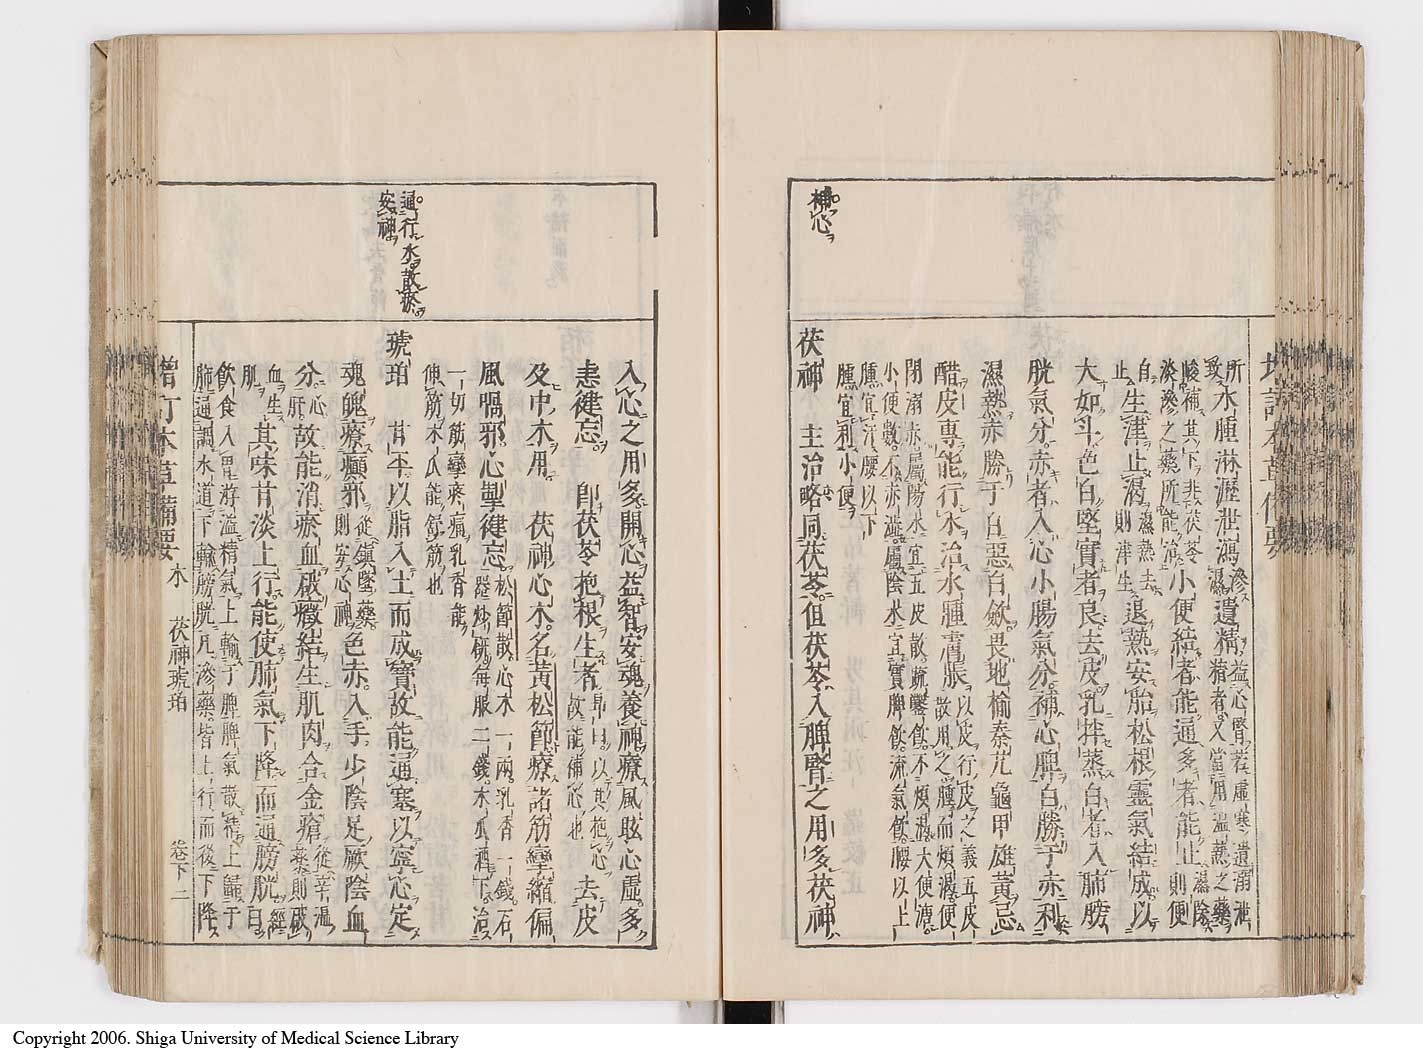 補心
所致水腫淋瀝泄瀉滲濕遺精益心腎若虛寒遺溺泄精者又當用溫熱之藥
峻補其下非茯苓淡滲之藥所能治小便結者能通多者能止濕除則便
自止生津止渴濕熱去則津生退熱安胎松根靈氣結成以
大如斗色白堅實者良去皮乳拌蒸白者入肺膀
胱氣分赤者入心小腸氣分補心脾白勝于赤利
濕熱赤勝于白惡白斂畏地榆秦艽龜甲雄黃忌
醋皮專能行水治水腫膚脹以皮行皮之義五皮散用之腫而煩渴便
閉溺赤屬陽水宜五皮散疏鑿飲不煩渴大便溏
小便數不赤澁屬陰水宜實脾飲流氣飲腰以上
腫宜汗腰以下
腫宜利小便
茯神 主治略同茯苓但茯苓入脾腎之用多茯神
通行水散瘀
安神
入心之用多開心益智安魂養神療風眩心虛多
恚健忘 卽茯苓抱根生者昂曰以其抱心故能補心也去皮
及中木用 茯神心木名黃松節療諸筋攣縮偏
風喎邪心掣健忘松節散心木一兩乳香一錢石器炒硏每服二錢木瓜酒下治
一切筋攣疼痛乳香能
伸筋木瓜能舒筋也
琥珀 甘平以脂入土而成寶故能通塞以寧心定
魂魄療癲邪從鎭墜藥則安心神色赤入手少陰足厥陰血
分心肝故能消瘀血破癥結生肌肉合金瘡從辛溫藥則破
血生肌其味甘淡上行能使肺氣下降而通膀胱經曰
飲食入胃游溢精氣上輸于脾脾氣散精上歸于
肺通調水道下輸膀胱凡滲藥皆上行而後下降
增訂本草備要 木 茯神琥珀 卷下二